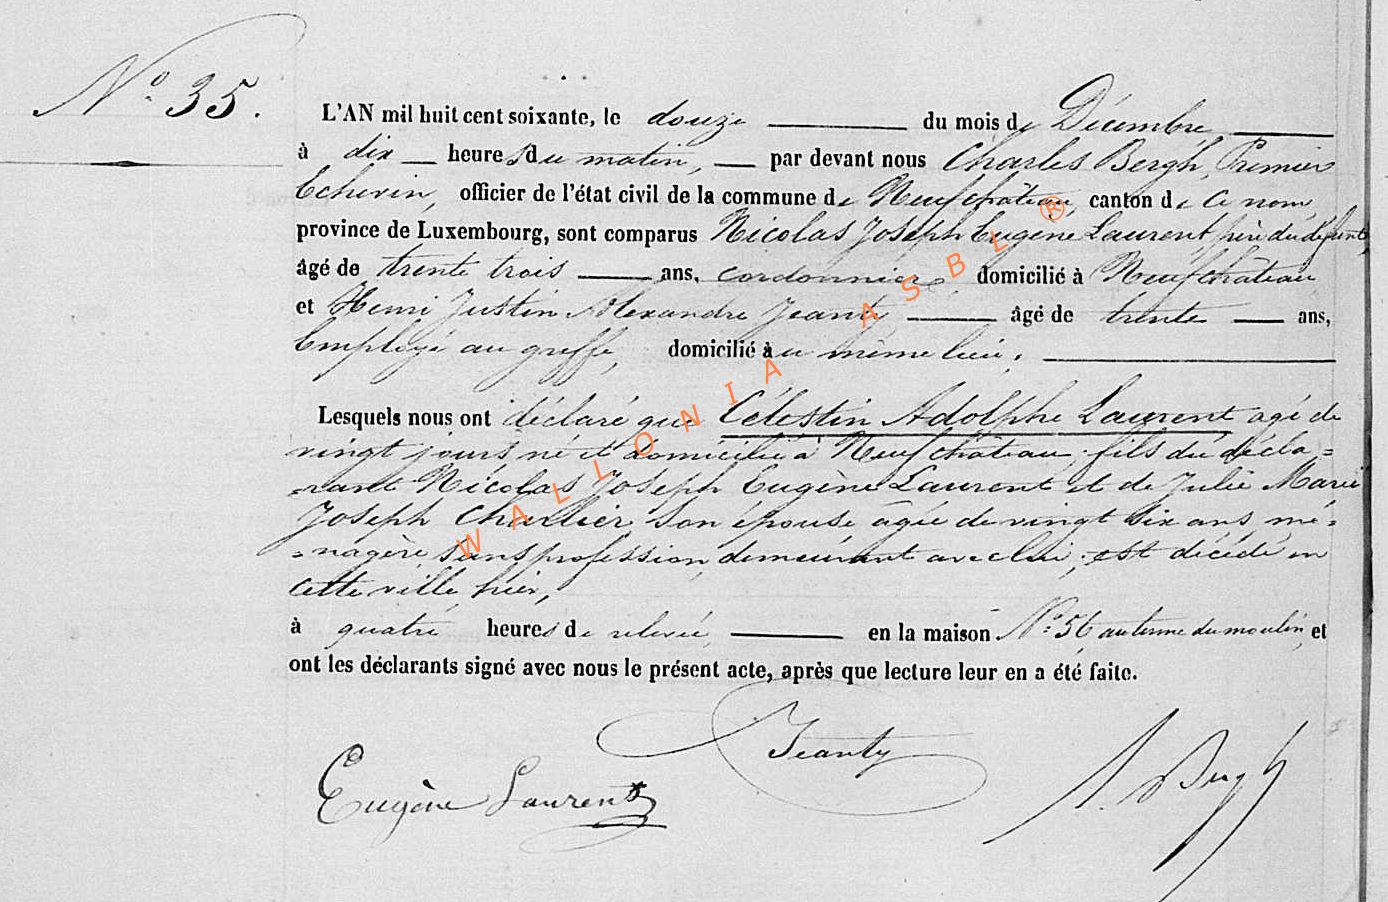 N° 35.
L'AN mil huit cent soixante, le douze du mois de Décembre,
à dix heures du matin, par devant nous Charles Bergh, Premier
Echevin, officier de l'état civil de la commune de Neufchâteau, canton de ce nom,
province de Luxembourg, sont comparus Nicolas Joseph Eugène Laurent père du défunt,
âgé de trente trois ans, cordonnier domicilié à Neufchâteau
et Henri Justin Alexandre Jeanty, âgé de trente ans,
Employé au greffe, domicilié au même lieu.
Lesquels nous ont déclaré que Célestin Adolphe Laurent agé de
vingt jours, né et domicilié à Neufchâteau, fils du décla=
=rant Nicolas Joseph Eugène Laurent et de Julie Marie
Joseph Charlier son épouse âgée de vingt six ans, mé=
=nagère, sans profession, demeurant avec lui, est décédé en
cette ville, hier,
à quatre heures de relevée, en la maison N° 56, au terme du moulin, et
ont les déclarants signé avec nous le présent acte, après que lecture leur en a été faite.
Jeanty
Eugène Laurent
Bergh
WALLONIA ASBL ®